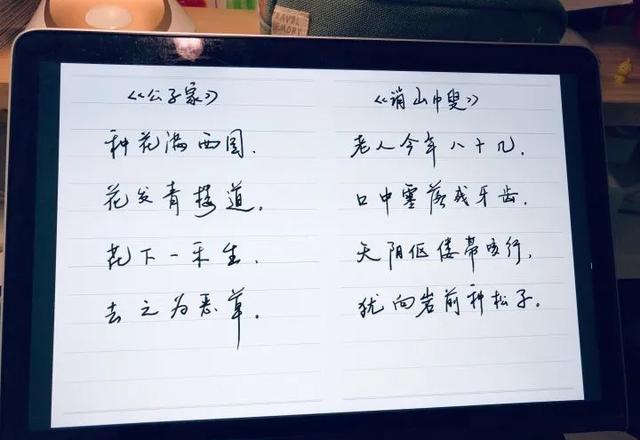 《公子家》
种花满西园.
花发青楼道.
花下一禾生.
去之为恶草.
《诮山中叟》
老人今年八十几,
口中零落残牙齿.
天阴伛偻带咳行,
犹向岩前种松子.